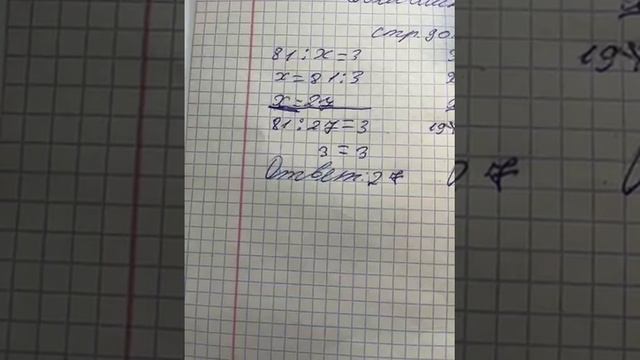 стр 90
81 : x = 3
x = 81 : 3
x = 27
81 : 27 = 3
3 = 3
Ответ: 27